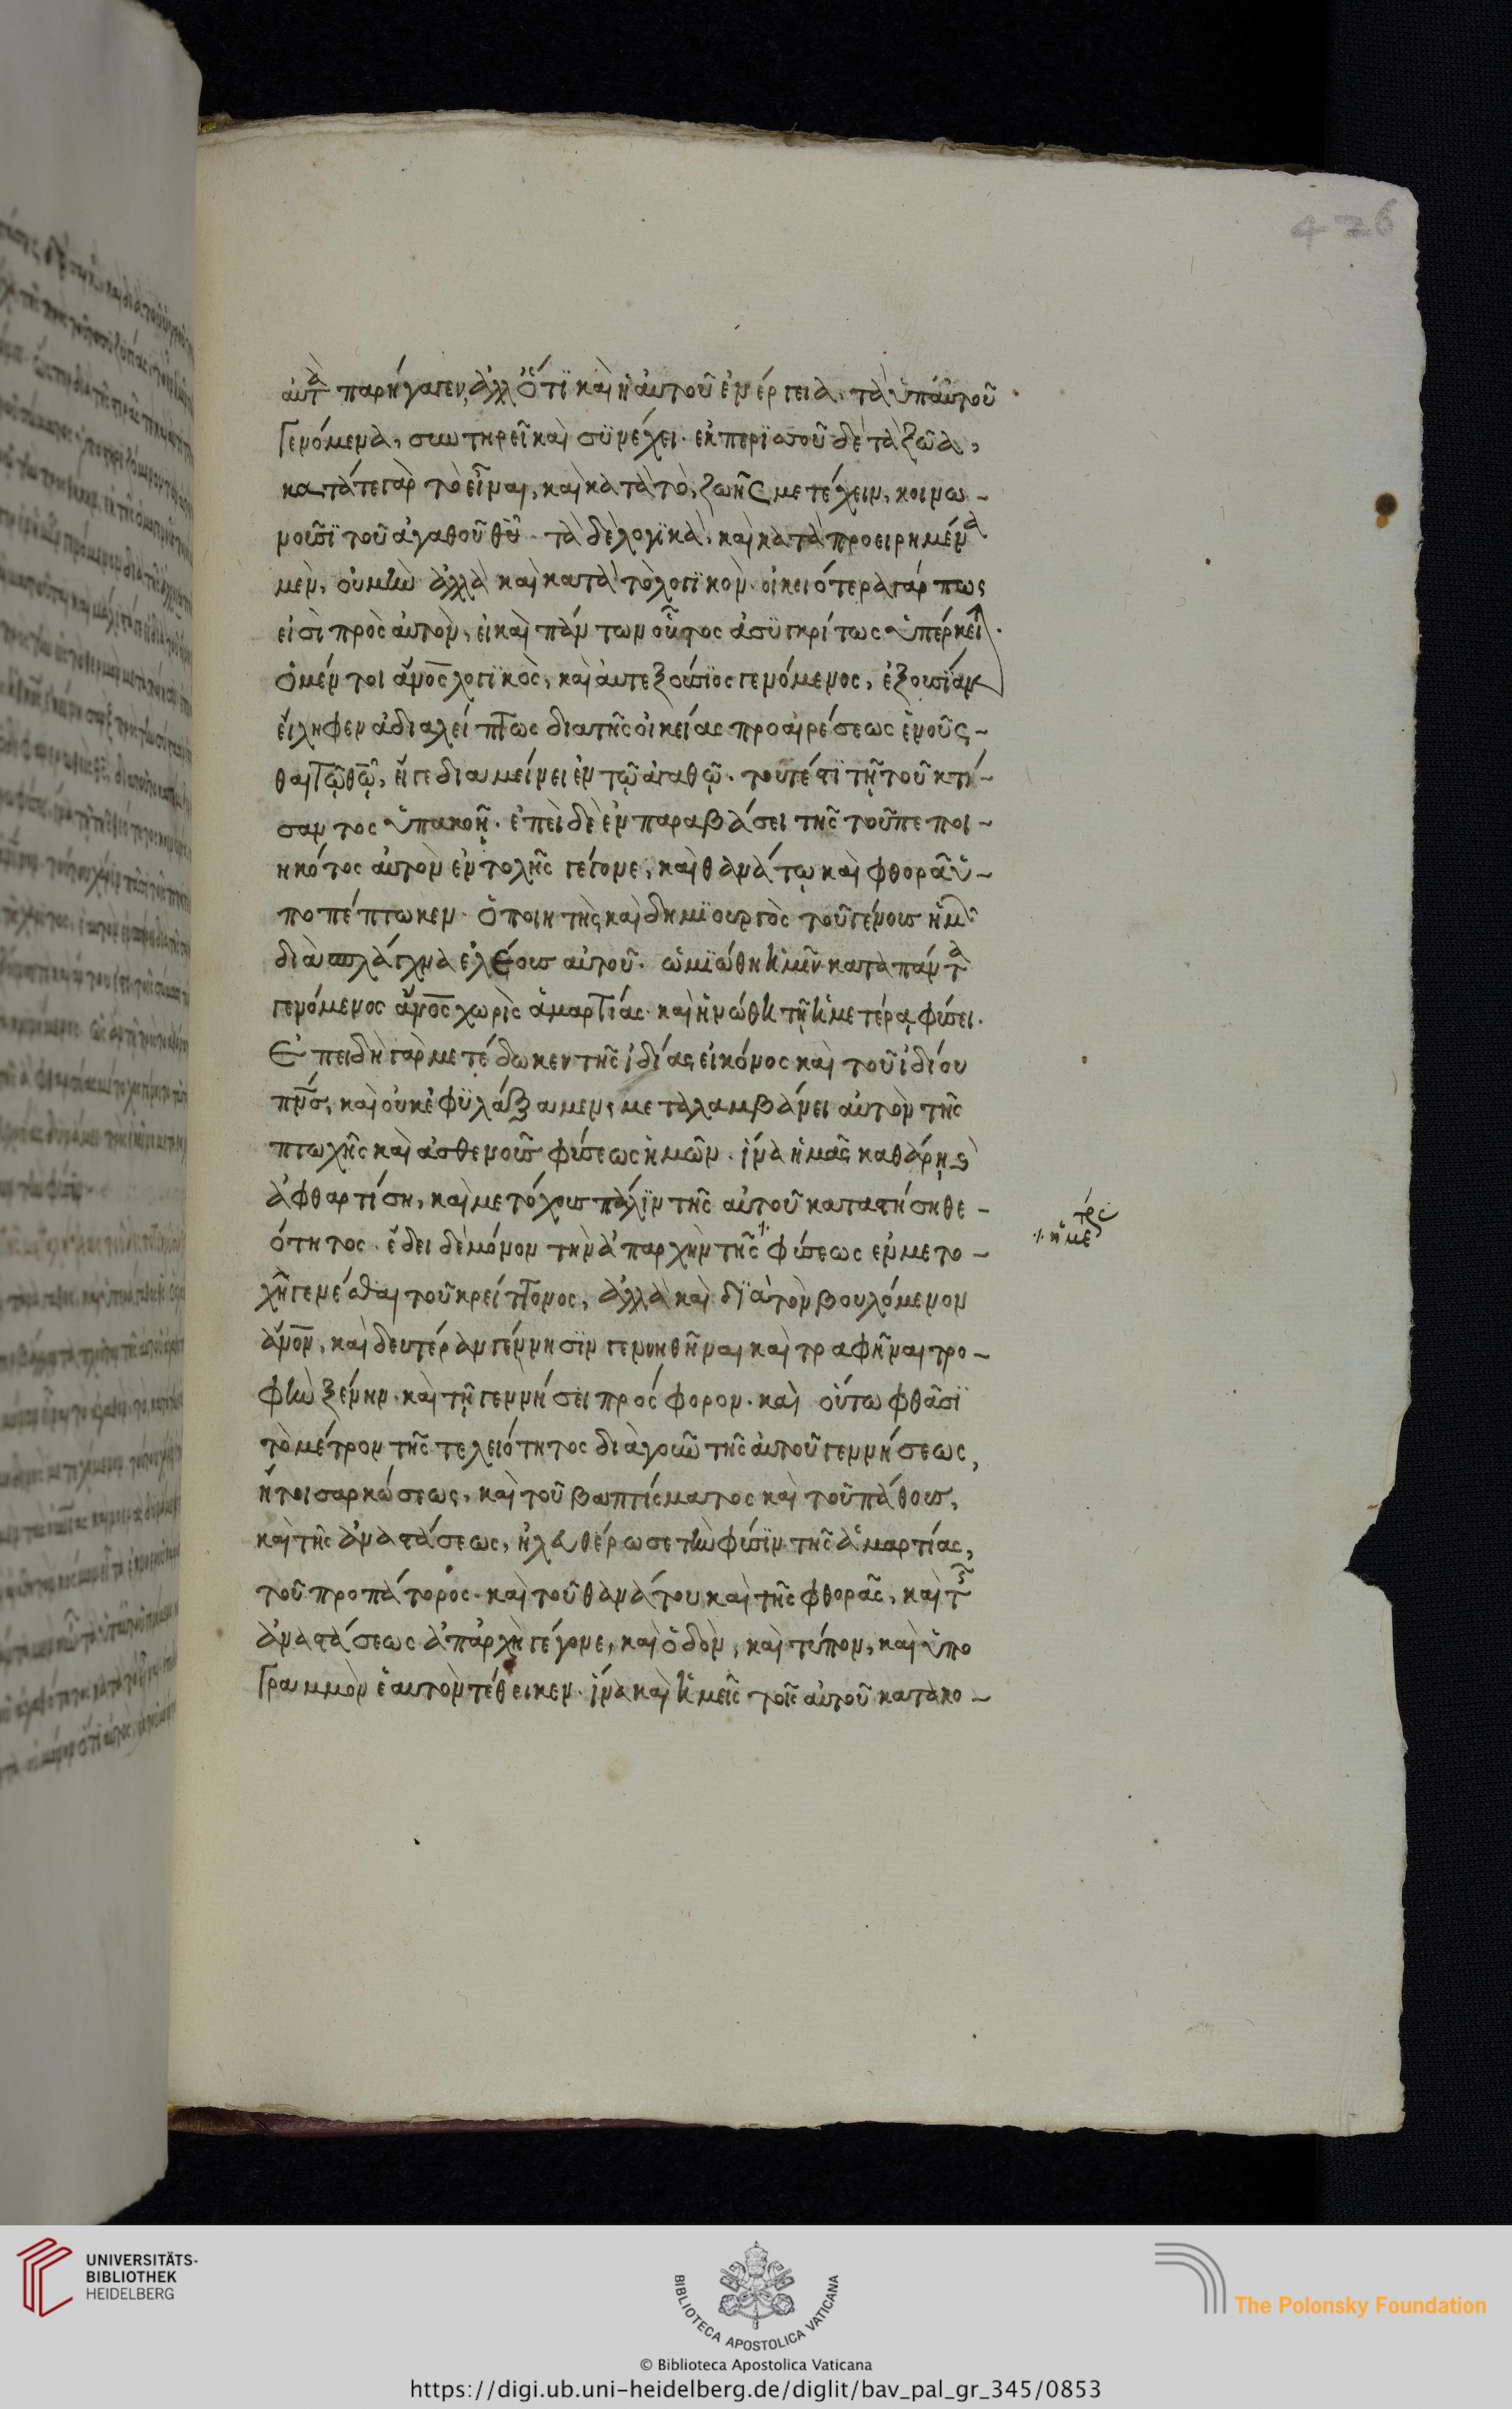 426
αὐτὰ παρήγαγεν, ἀλλ' ὅτι καὶ ἡ αὐτοῦ ἐνέργεια, τὰ ὑπ' αὐτοῦ
γενόμενα, συντηρεῖ καὶ συνέχει. ἐκ περισσοῦ δὲ τὰ ζῶα,
κατά τε γὰρ τὸ εἶναι, καὶ κατὰ τὸ, ζωῆς μετέχειν, κοινω-
νοῦσι τοῦ ἀγαθοῦ θῦ. τὰ δὲ λογικὰ, καὶ κατὰ τὰ προειρημένα
μὲν, οὐ μὴν ἀλλὰ καὶ κατὰ τὸ λογικὸν. οἰκειότερα γάρ πως
εἰσὶ πρὸς αὐτὸν, εἰ καὶ πάντων οὗτος ἀσυγκρίτως ὑπέρκει.
ὁ μέν τοι ἄνος λογικὸς, καὶ αὐτεξούσιος γενόμενος, ἐξουσίαν
εἴληφεν ἀδιαλείπτως διὰ τῆς οἰκείας προαιρέσεως ἑνοῦσ-
θαι τῷ θῷ, εἴγε διαμείνει ἐν τῷ ἀγαθῷ. τουτέστι τῇ τοῦ κτί-
σαντος ὑπακοῇ. ἐπεὶ δὲ ἐν παραβάσει τῆς τοῦ πεποι-
ηκότος αὐτὸν ἐντολῆς γέγονε, καὶ θανάτω καὶ φθορᾶ ὑ-
ποπέπτωκεν. ὁ ποιητὴς καὶ δημιουργὸς τοῦ γένους ἡμῶν
διὰ σπλάγχνα ἐλέους αὐτοῦ. ὡμιώθη ἡμῖν κατὰ πάντα
γενόμενος ἄνος χωρὶς ἁμαρτίας. καὶ ἡνώθη τῇ ἡμετέρᾳ φύσει.
Ἐπειδὴ γὰρ μετέδωκεν τῆς ἰδίας εἰκόνος καὶ τοῦ ἰδίου
πνσ, καὶ οὐκ ἐφυλάξαμεν, μεταλαμβάνει αὐτὸν τῆς
πτωχῆς καὶ ἀσθενοῦς φύσεως ἡμῶν. ἵνα ἡμᾶς καθάρῃ καὶ
ἀφθαρτίση, καὶ μετόχους πάλιν τῆς αὐτοῦ καταστήση θε-
ότητος. ἔδει δὲ μόνον τὴν ἀπαρχὴν τῆς φύσεως ἐν μετο-
ἡμετέρας
χῆ γενέσθαι τοῦ κρείττονος, ἀλλὰ καὶ διὰ τὸν βουλόμενον
ἄνον, καὶ δευτέραν γέννησιν γεννηθῆναι καὶ τραφῆναι τρο-
φὴν ξένην. καὶ τῇ γεννήσει πρόσφορον. καὶ οὕτω φθᾶσι
τὸ μέτρον τῆς τελειότητος διὰ γοῦν τῆς αὐτοῦ γεννήσεως,
ἤτοι σαρκώσεως, καὶ τοῦ βαπτίσματος καὶ τοῦ πάθους,
καὶ τῆς ἀναστάσεως, ἠλευθέρωσε τὴν φύσιν τῆς ἁμαρτίας,
τοῦ προπάτορος. καὶ τοῦ θανάτου καὶ τῆς φθορᾶς, καὶ τῆς
ἀναστάσεως ἀπαρχὴ γέγονε, καὶ ὁδὸν, καὶ τύπον, καὶ ὑπο
γραμμὸν ἑαυτὸν τέθεικεν. ἵνα καὶ ἡμεῖς τοῖς αὐτοῦ κατακο-
UNIVERSITÄTS-
BIBLIOTHEK
HEIDELBERG
BIBLIOTECA APOSTOLICA VATICANA
The Polonsky Foundation
© Biblioteca Apostolica Vaticana
https://digi.ub.uni-heidelberg.de/diglit/bav_pal_gr_345/0853